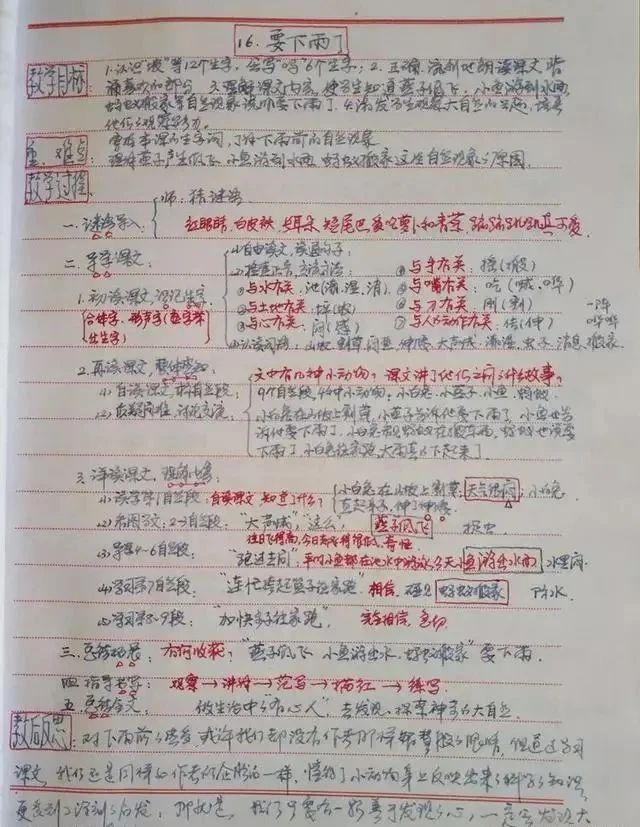 16. 要下雨了
教学目标 1.认识"坡"等12个生字，会写"吗"6个生字；2.正确、流利地朗读课文，背
诵喜欢的部分。3.理解课文内容，使学生知道燕子低飞、小鱼游到水面
蚂蚁搬家等自然现象说明要下雨了。4.激发学生观察大自然的兴趣，培养
他们的观察能力。
重、难点 掌握本课的生字词，了解下雨前的自然现象
理解燕子产生低飞、小鱼游到水面、蚂蚁搬家这些自然现象的原因。
教学过程 师：猜谜语
一、谜语导入 红眼睛，白皮袄，长耳朵，短尾巴，爱吃萝卜和青菜，蹦蹦跳跳真可爱
二、导学课文：
(1)自由读文，读通句子
(2)检查正音，交流习得：
与手有关：搬
1.初读课文，识记生字 与水有关：池(潮、湿、消) 与嘴有关：吃(喊、哗)
合体字、形声字 与土地有关：坡 与刀有关：刚(割) 一阵
与心有关：闷(感) 与人的动作有关：伸 哗哗
山坡 割草 闷 伸腰 大声喊 潮湿 虫子 消息 搬家
2.再读课文，整体感知 文中有几种小动物？课文讲了他们之间的什么故事？
(1)自读课文，标自然段： 9个自然段，4种小动物：小白兔、小燕子、小鱼、蚂蚁
(2)质疑问难，讨论交流： 小白兔在山坡上割草，小燕子告诉他要下雨了，小鱼也告
诉他要下雨了，小白兔看见蚂蚁在搬东西，蚂蚁也说要
下雨了，小白兔往家跑，大雨真的下起来了
3.详读课文
(1)读学第1自然段：自读课文，知道了什么？ 小白兔在山坡上割草，天气很闷，小白兔
直起身子，伸了伸腰
(2)2-3自然段："大声喊"，这么， 燕子低飞 捉虫
往日飞得高，今日飞得很低 奇怪
(3)导学4-6自然段："跑过去问"，平时小鱼都在池水中游泳，今天小鱼游出水面 水里闷
(4)学习第7自然段："连忙挎起篮子往家跑"，相信， 蚂蚁搬家
(5)学习第8-9段："加快步子往家跑"， 完全相信，急切
三、总结拓展：有何收获？"燕子低飞 小鱼游出水 蚂蚁搬家"要下雨。
四、指导书写： 观察→讲解→范写→描红→练写
五、总结全文： 做生活中的"有心人"，去发现、探索神奇的大自然
教后反思：对下雨前的感受，或许我们都没有作者那样 的眼睛，但通过学习
课文，我们还是同样和作者 一样，懂得了小动物身上反映出来的科学知识